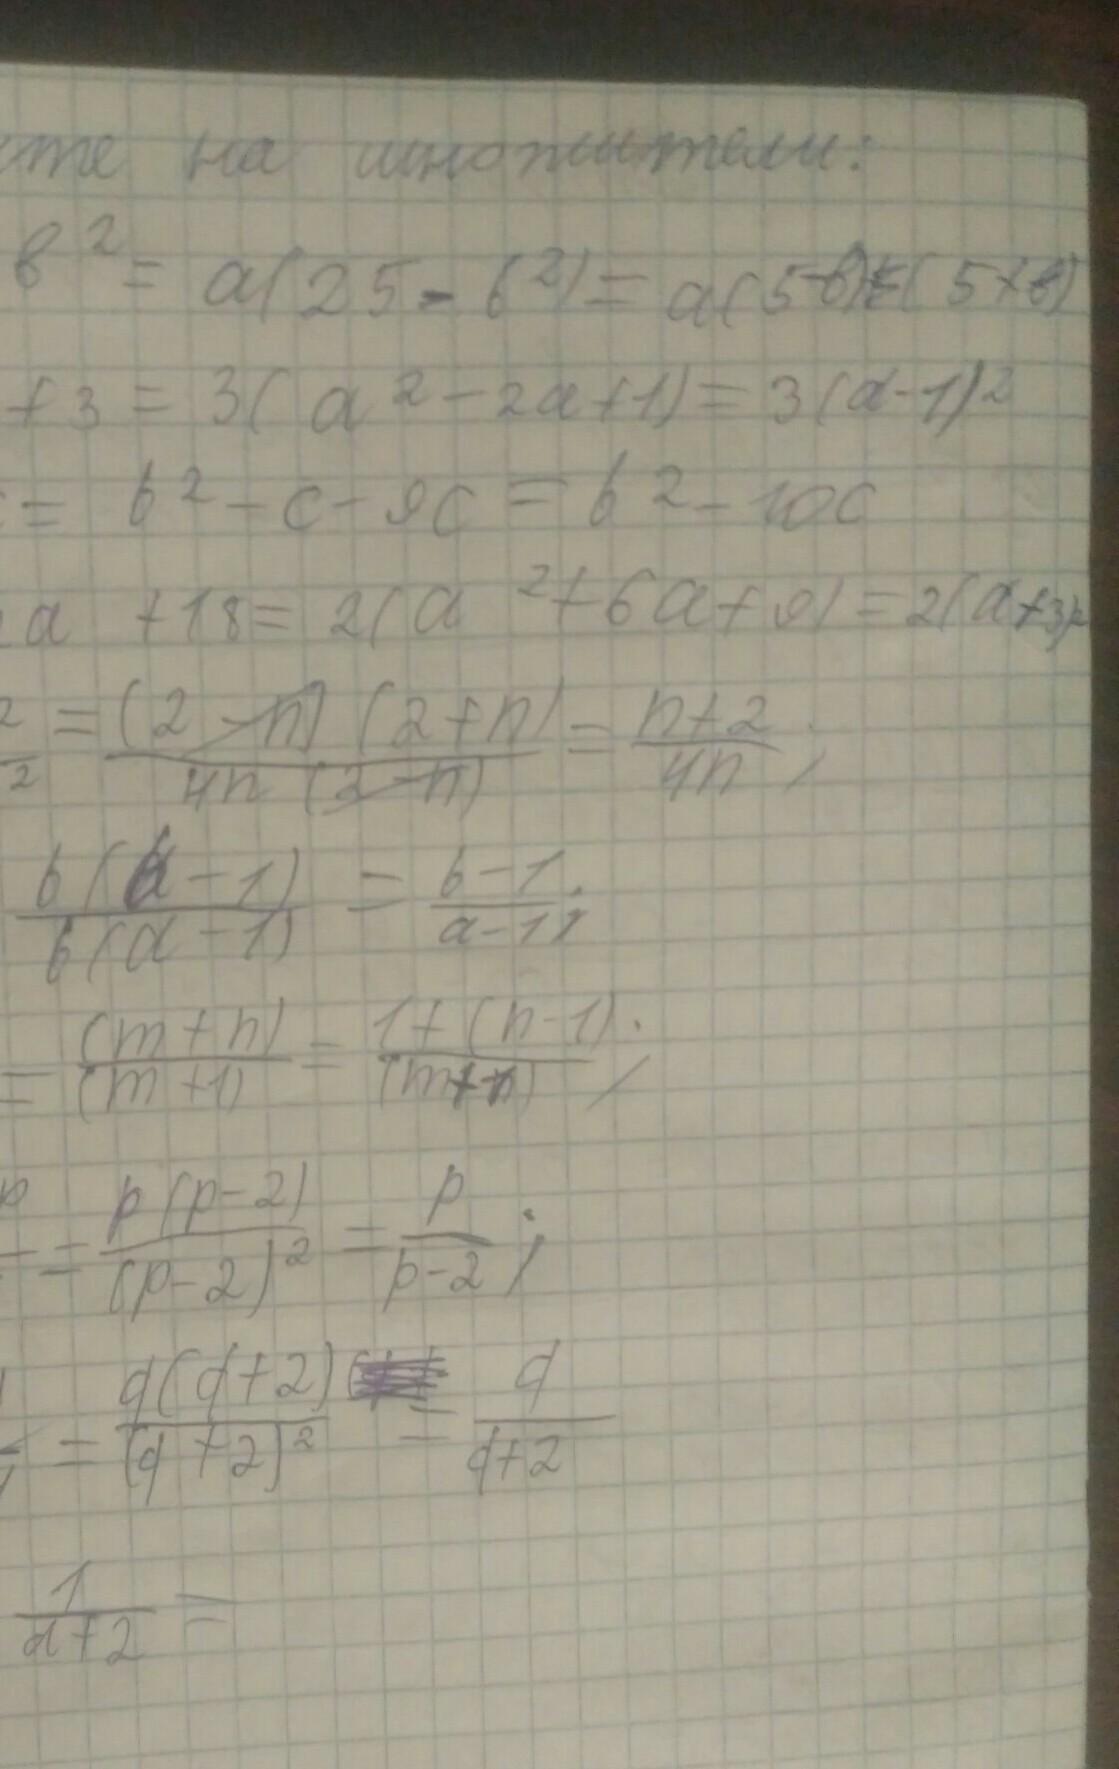 на множители:
в² = a(25 - b²) = a(5-в)(5+в)
+3 = 3(a² - 2a + 1) = 3(a-1)²
= b² - c - 9c = b² - 10c
a + 18 = 2(a² + 6a + 9) = 2(a+3)²
= (2-n)(2+n) / 4n(2-n) = n+2 / 4n;
b(b-1) / b(a-1) = b-1 / a-1;
= (m+n) / (m+1) = 1+(n-1) / (m+n);
p = p(p-2) / (p-2)² = p / p-2;
= q(q+2) / (q+2)² = q / q+2
1 / a+2 =